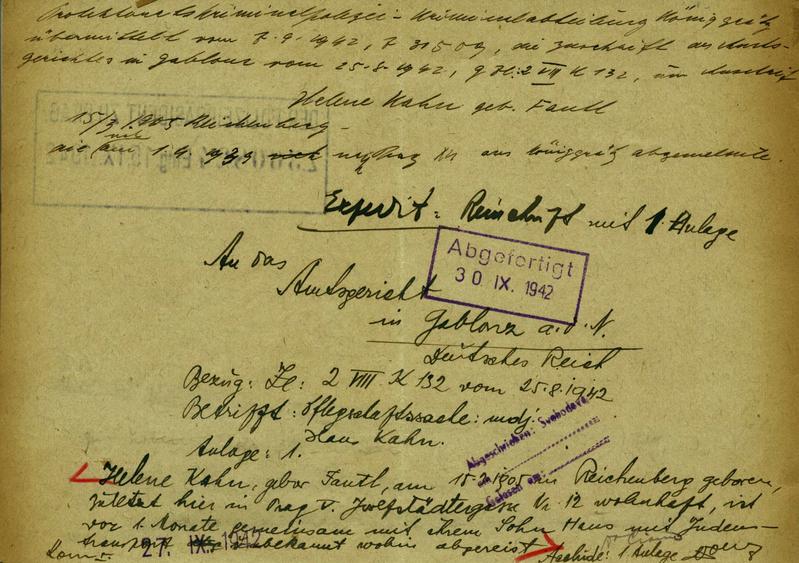 Protektoratskriminalpolizei - Kriminalabteilung Königgrätz
übermittelt vom 7.9.1942, Z 31509, die Zuschrift des Amts-
gerichtes in Gablonz vom 25.8.1942, g Zl: 2 VIII K 132, um Anschrift
Helene Kahn geb. Fantl
15/2 1905 Reichenberg -
die am 1.9. 1939 nach Prag XII aus Königgrätz abgemeldete.
Expedit: Reinschrift mit 1 Anlage
Abgefertigt
30 IX. 1942
An das
Amtsgericht
in Gablonz a.d.N.
Deutsches Reich
Bezug: Zl: 2 VIII K 132 vom 25.8.1942
Betrifft: Pflegschaftssache: mdj.
Hans Kahn.
Anlage: 1.
Abgeschrieben: Svobodová
am
Gelesen am:
Helene Kahn, gebor Fantl, am 15.2.1905 in Reichenberg geboren,
zuletzt hier in Prag V. Zwölfstädtergasse Nr. 12 wohnhaft, ist
vor 1. Monate gemeinsam mit ihrem Sohn Hans mit Juden-
transport unbekannt wohin abgereist
27. IX. 1942
1 Anlage